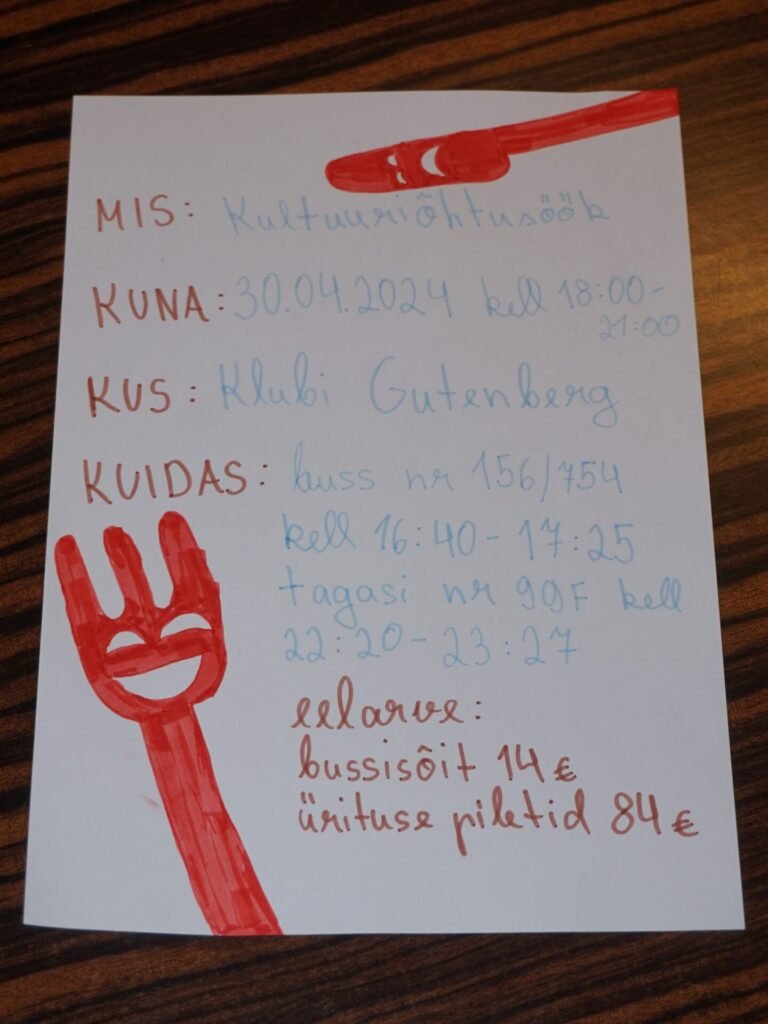 MIS: Kultuuriõhtusöök
KUNA: 30.04.2024 kell 18:00-
21:00
KUS: Klubi Gutenberg
KUIDAS: buss nr 156/754
kell 16:40-17:25
tagasi nr 99F kell
22:20-23:27
eelarve:
bussisõit 14€
ürituse piletid 84€